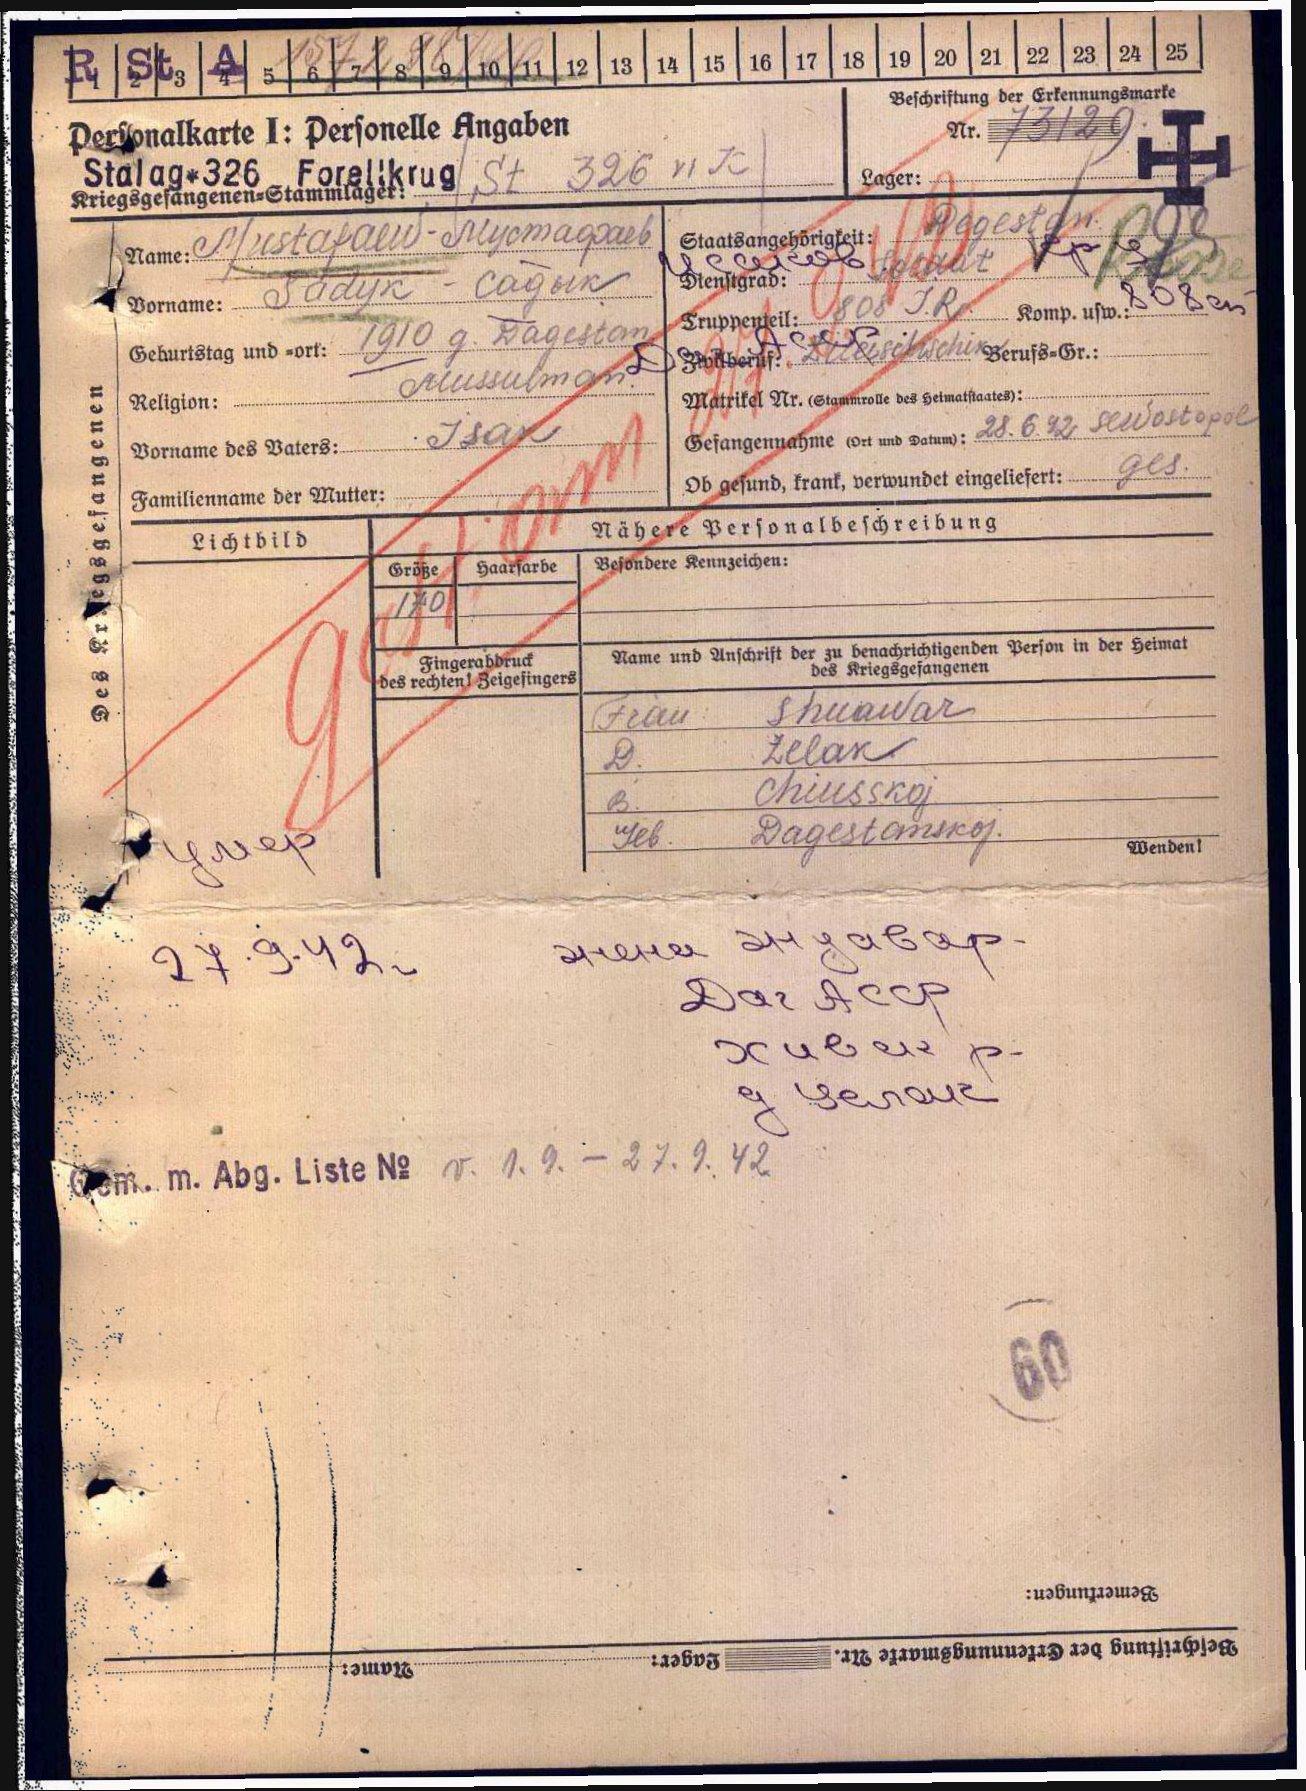 R St A
1 2 3 4 5 6 7 8 9 10 11 12 13 14 15 16 17 18 19 20 21 22 23 24 25
Personalkarte I: Personelle Angaben
Beschriftung der Erkennungsmarke
Nr. 73129
Stalag*326 Forellkrug
Kriegsgefangenen-Stammlager: St 326 VI K
Lager:
Des Kriegsgefangenen
Name: Mustafaew - Мустафаев
Vorname: Sadyk - Садык
Geburtstag und -ort: 1910 g. Dagestan
Religion: Mussulman.
Vorname des Vaters: Isak
Familienname der Mutter:
Staatsangehörigkeit: Dagestan.
Исаков
Dienstgrad: Soldat
Truppenteil: 808 I.R.
Komp. usw.: 808
Zivilberuf:
Berufs-Gr.:
Matrikel Nr. (Stammrolle des Heimatstaates):
Gefangennahme (Ort und Datum): 28.6.42 Sewostopol
Ob gesund, krank, verwundet eingeliefert: ges.
gest. am 27.9.42
Lichtbild
Nähere Personalbeschreibung
Größe
Haarfarbe
Besondere Kennzeichen:
170
Fingerabdruck
des rechten! Zeigefingers
Name und Anschrift der zu benachrichtigenden Person in der Heimat
des Kriegsgefangenen
Frau Shuawar
D. Zelak
B. Chiusskoj
Geb. Dagestanskoj.
Wenden!
умер
27.9.42г
жена
Даг АССР
хивск р-
д Целак
Gem. m. Abg. Liste № v. 1.9. - 27.9.42
60
Bemerkungen:
Beschriftung der Erkennungsmarke Nr.
Lager:
Name: